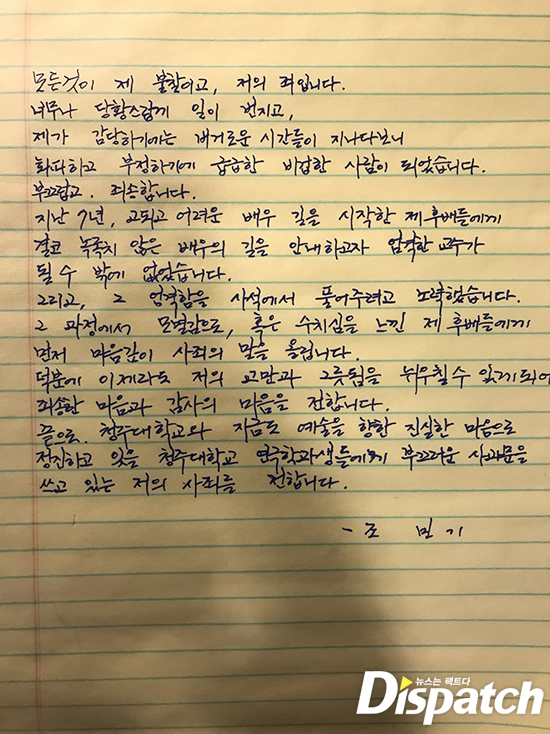 모든것이 제 불찰이고, 저의 죄입니다.
너무나 당황스럽게 일이 번지고,
제가 감당하기에는 버거로운 시간들이 지나다보니
회피하고 부정하기에 급급한 비겁한 사람이 되었습니다.
부끄럽고. 죄송합니다.
지난 7년, 고되고 어려운 배우 길을 시작한 제 후배들에게
결코 녹록치 않은 배우의 길을 안내하고자 엄격한 교수가
될 수 밖에 없었습니다.
그리고, 그 엄격함을 사석에서 풀어주려고 노력했습니다.
그 과정에서 모멸감으로, 혹은 수치심을 느낀 제 후배들에게
먼저 마음깊이 사죄의 말을 올립니다.
덕분에 이제라도 저의 교만과 그릇됨을 뉘우칠 수 있게 되어
죄송한 마음과 감사의 마음을 전합니다.
끝으로. 청주대학교와 지금도 예술을 향한 진실한 마음으로
정진하고 있을 청주대학교 연극학과생들에게 부끄러운 사과문을
쓰고 있는 저의 사죄를 전합니다.
- 조 민 기
뉴스는 팩트다
Dispatch